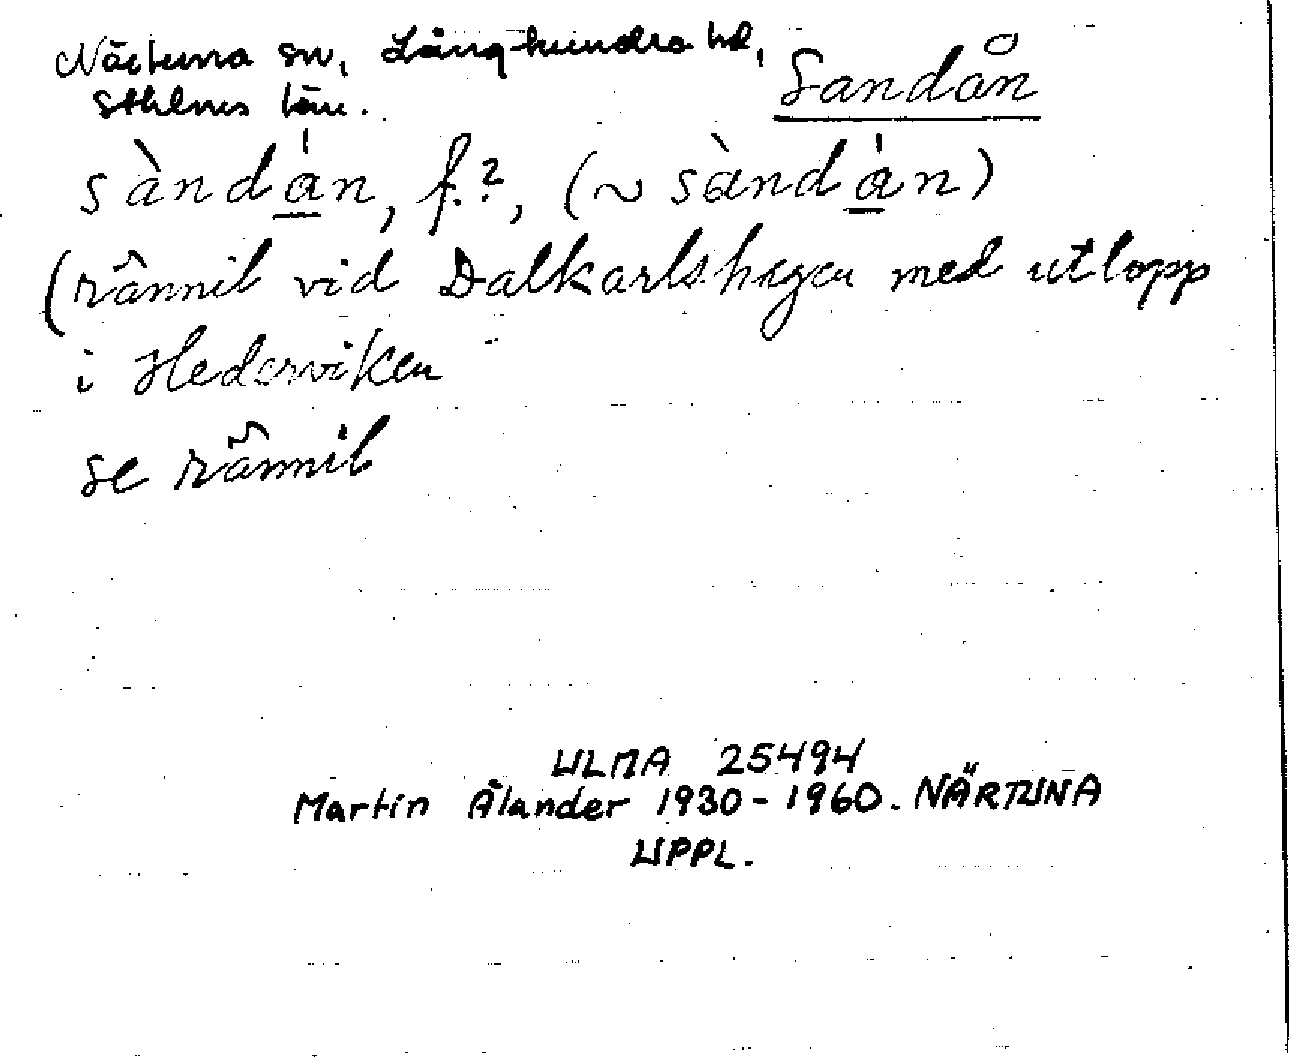 Närtuna sn, Långhundra hd,
Sthlms län.
Sandån
sàndá̱n, f.?, (~ sàndá̱n)
(rännil vid Dalkarlshagen med utlopp
i Hederviken
se rännil
ULMA 25494
Martin Ålander 1930-1960. NÄRTUNA
UPPL.